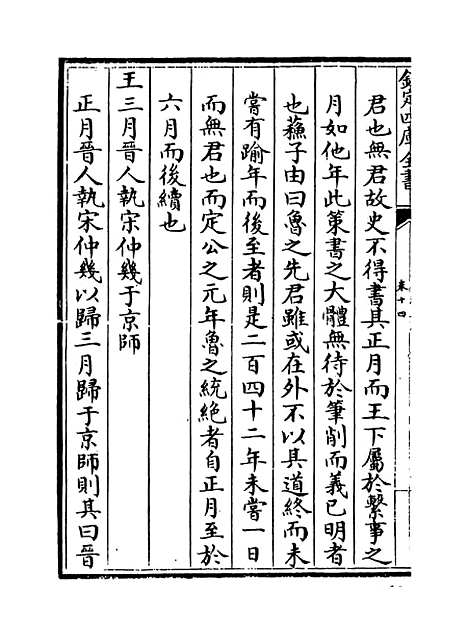 欽定四庫全書
卷十四
君也無君故史不得書其正月而王下屬於繫事之
月如他年此策書之大體無待於筆削而義已明者
也蘓子由曰魯之先君雖或在外不以其道終而未
嘗有踰年而後至者則是二百四十二年未嘗一日
而無君也而定公之元年魯之統絶者自正月至於
六月而後續也
王三月晉人執宋仲幾于京師
正月晉人執宋仲幾以歸三月歸于京師則其曰晉